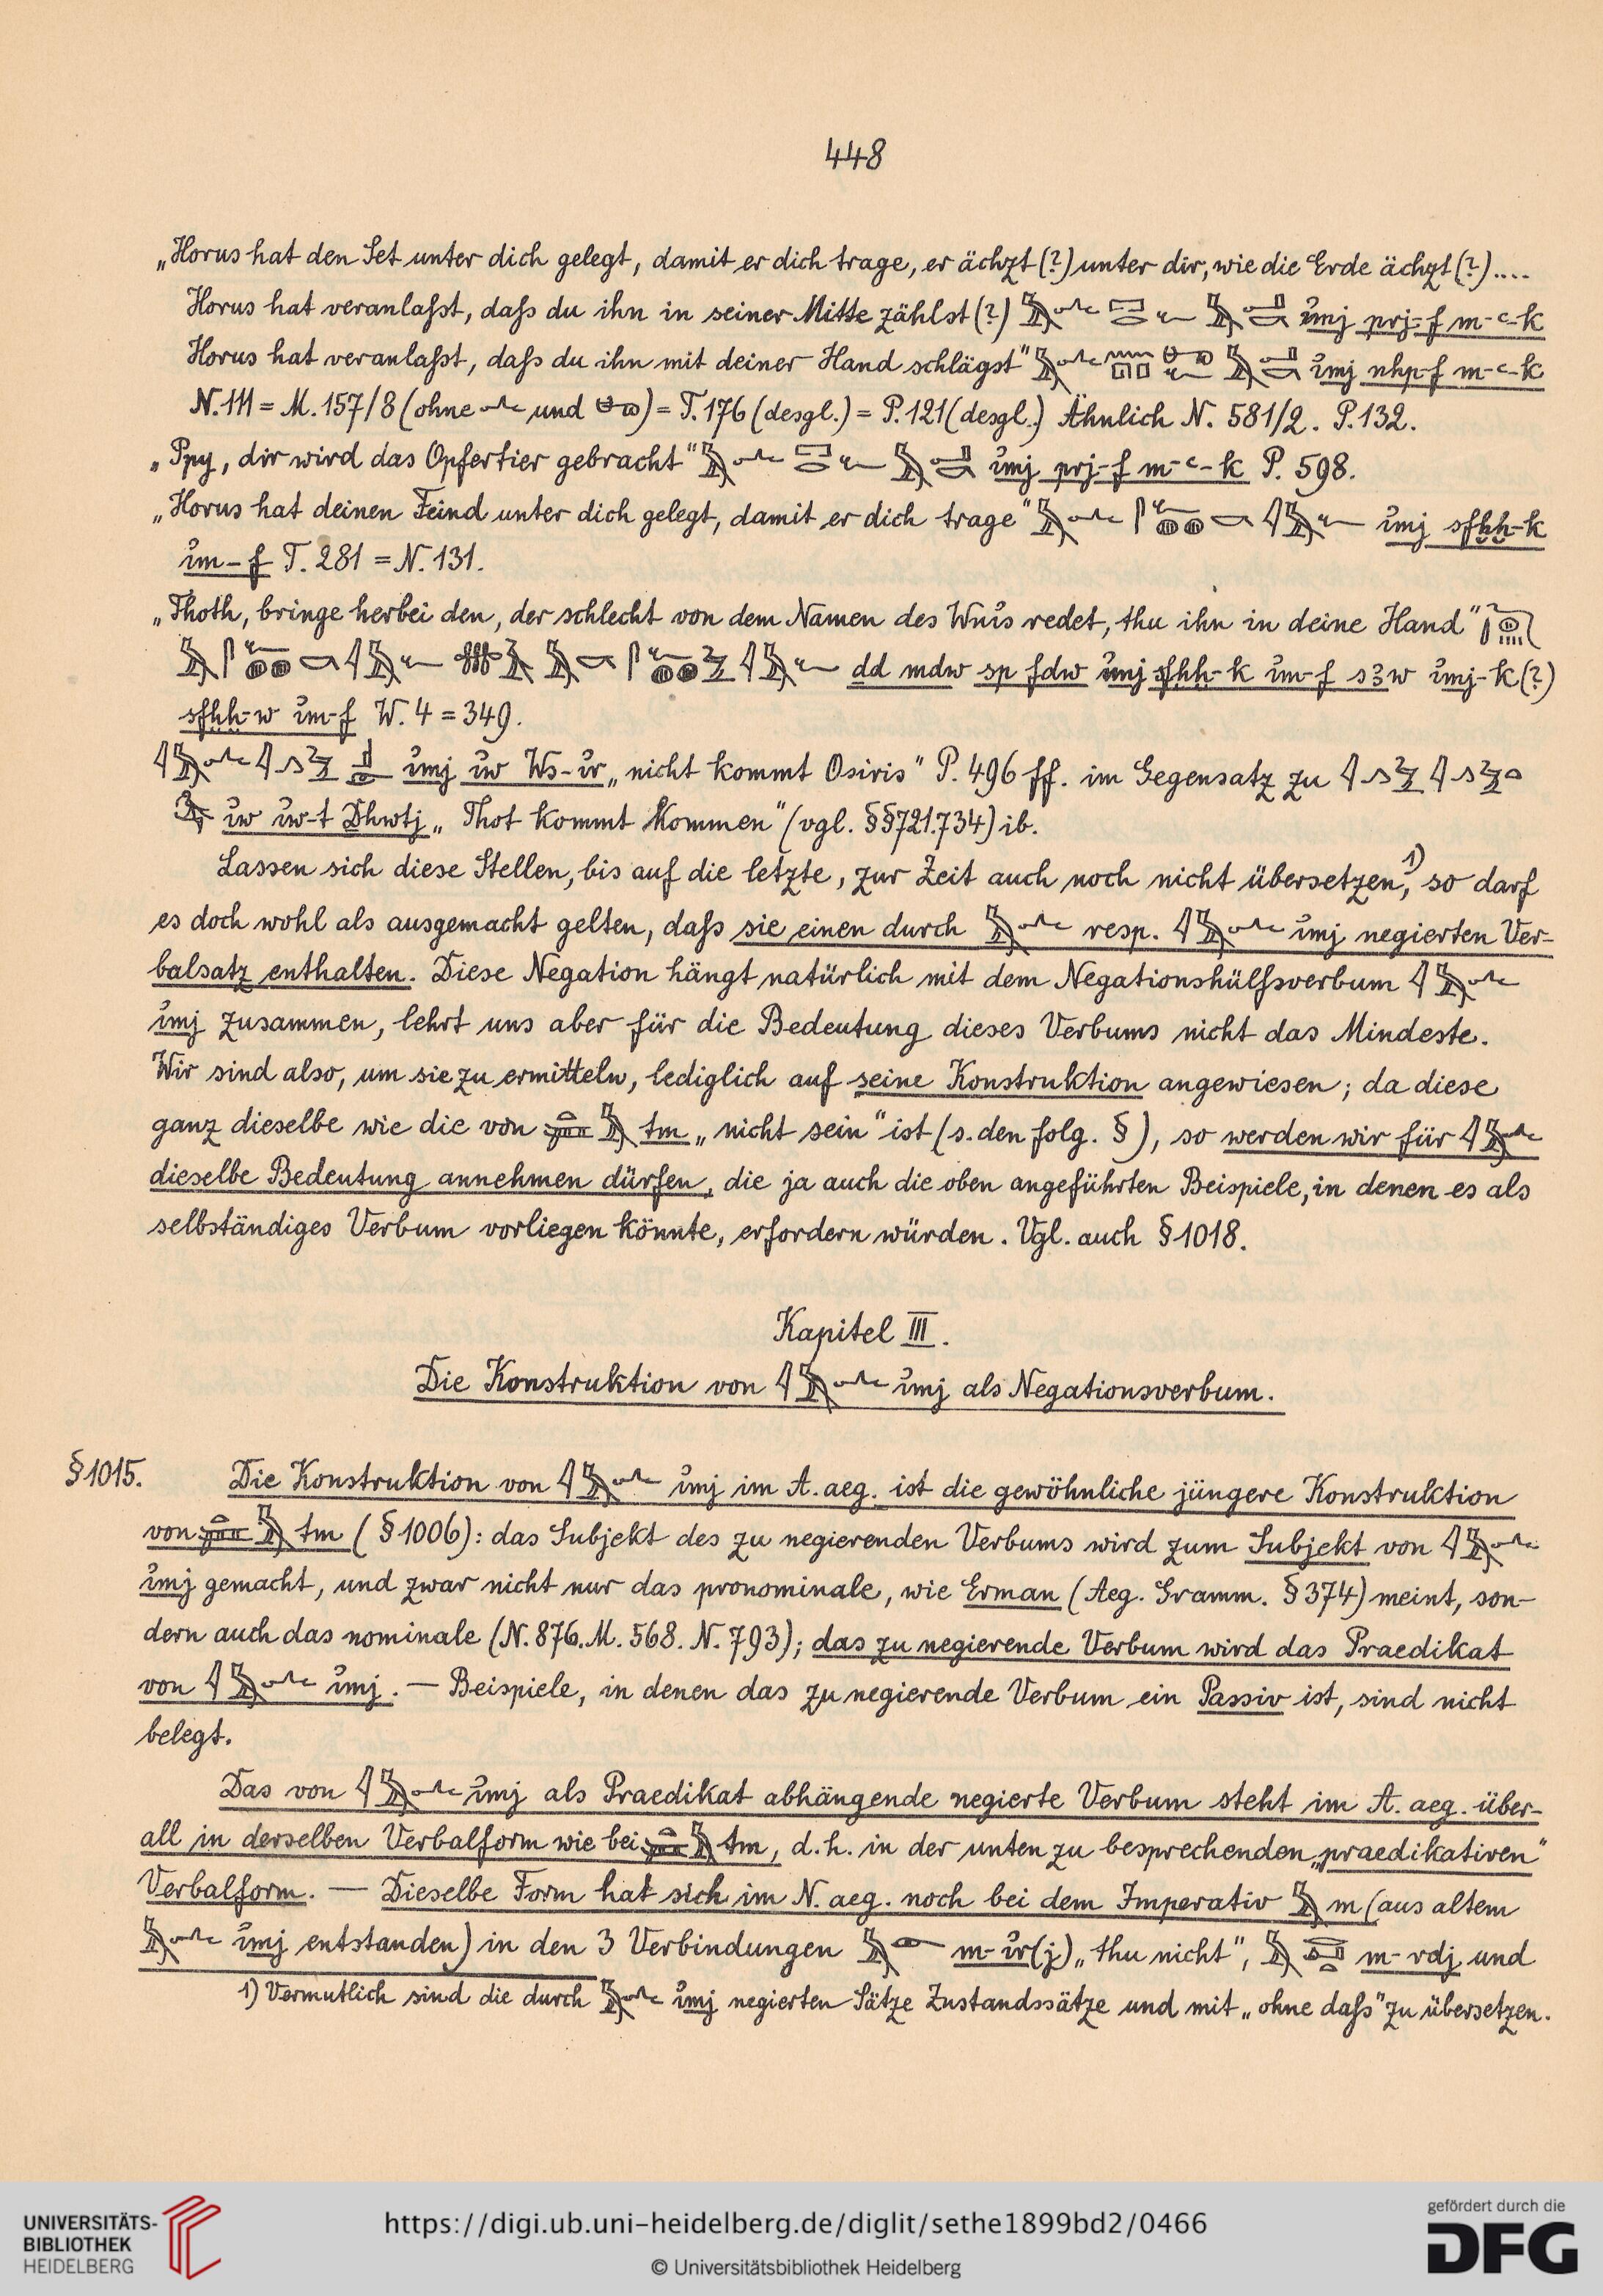 448
„Horus hat den Set unter dich gelegt, damit er dich trage, er ächzt (?) unter dir, wie die Erde ächzt (?)....
Horus hat veranlaßt, daß du ihn in seiner Mitte zählst (?) 𓅓𓂜 𓉐𓂋𓆑 𓅓𓂝𓎡 imj prj-f m-ꜥ-k
Horus hat veranlaßt, daß du ihn mit deiner Hand schlägst" imj nhp-f m-ꜥ-k
N. 111 = M. 157/8 (ohne 𓂜 und ) = T. 176 (desgl.) = P. 121 (desgl.) Ähnlich N. 581/2. P. 132.
„Ppy, dir wird das Opfertier gebracht" 𓅓𓂜 𓉐𓂋𓆑 𓅓𓂝𓎡 imj prj-f m-ꜥ-k P. 598.
„Horus hat deinen Feind unter dich gelegt, damit er dich trage" 𓅓𓂜 𓋴𓆑𓐍𓐍𓎡 𓇋𓅓𓆑 imj sfḫḫ-k
im-f T. 281 = N. 131.
„Thoth, bringe herbei den, der schlecht von dem Namen des Wnis redet, thu ihn in deine Hand"
dd mdw sp fdw imj sfḫḫ-k im-f sꜣw imj-k (?)
sfḫḫ-w im-f W. 4 = 349.
𓇋𓅓𓂜 imj iw Ws-ir „nicht kommt Osiris" P. 496 ff. im Gegensatz zu
iw iw-t Dhwtj „Thot kommt Kommen" (vgl. §§721.734) ib.
Lassen sich diese Stellen, bis auf die letzte, zur Zeit auch noch nicht übersetzen,1) so darf
es doch wohl als ausgemacht gelten, daß sie einen durch 𓅓𓂜 resp. 𓇋𓅓𓂜 imj negierten Ver-
balsatz enthalten. Diese Negation hängt natürlich mit dem Negationshülfsverbum 𓇋𓅓𓂜
imj zusammen, lehrt uns aber für die Bedeutung dieses Verbums nicht das Mindeste.
Wir sind also, um sie zu ermitteln, lediglich auf seine Konstruktion angewiesen; da diese
ganz dieselbe wie die von 𓍃𓅓 tm „nicht sein" ist (s. den folg. §), so werden wir für 𓇋𓅓𓂜
dieselbe Bedeutung annehmen dürfen, die ja auch die oben angeführten Beispiele, in denen es als
selbständiges Verbum vorliegen könnte, erfordern würden. Vgl. auch §1018.
Kapitel III.
Die Konstruktion von 𓇋𓅓𓂜 imj als Negationsverbum.
§1015. Die Konstruktion von 𓇋𓅓𓂜 imj im A. aeg. ist die gewöhnliche jüngere Konstruktion
von 𓍃𓅓 tm (§1006): das Subjekt des zu negierenden Verbums wird zum Subjekt von 𓇋𓅓𓂜
imj gemacht, und zwar nicht nur das pronominale, wie Erman (Aeg. Gramm. §374) meint, son-
dern auch das nominale (N. 876. M. 568. N. 793); das zu negierende Verbum wird das Praedikat
von 𓇋𓅓𓂜 imj. — Beispiele, in denen das zu negierende Verbum ein Passiv ist, sind nicht
belegt.
Das von 𓇋𓅓𓂜 imj als Praedikat abhängende negierte Verbum steht im A. aeg. über-
all in derselben Verbalform wie bei 𓍃𓅓 tm, d. h. in der unten zu besprechenden „praedikativen"
Verbalform. — Dieselbe Form hat sich im N. aeg. noch bei dem Imperativ 𓅓 m (aus altem
𓅓𓂜 imj entstanden) in den 3 Verbindungen 𓅓𓁹 m-ir(j) „thu nicht", m-rdj und
1) Vermutlich sind die durch 𓅓𓂜 imj negierten Sätze Zustandssätze und mit „ohne daß" zu übersetzen.
UNIVERSITÄTS-
BIBLIOTHEK
HEIDELBERG
https://digi.ub.uni-heidelberg.de/diglit/sethe1899bd2/0466
© Universitätsbibliothek Heidelberg
gefördert durch die
DFG